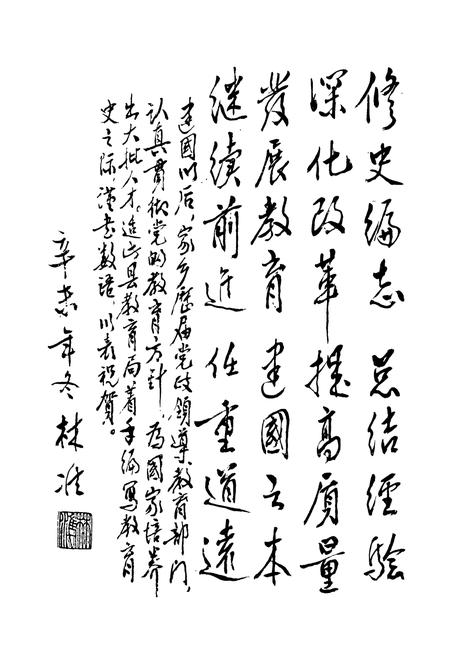 修史编志 总结經驗
深化改革 提高质量
發展教育 建國之本
继续前進 任重道遠
建國以后，家乡歷届党政領導、教育部门，
认真贯彻党的教育方針，為國家培养
出大批人才。此县教育局着手编寫教育
史之际，谨书数语，以表祝贺。
辛未年冬 林准